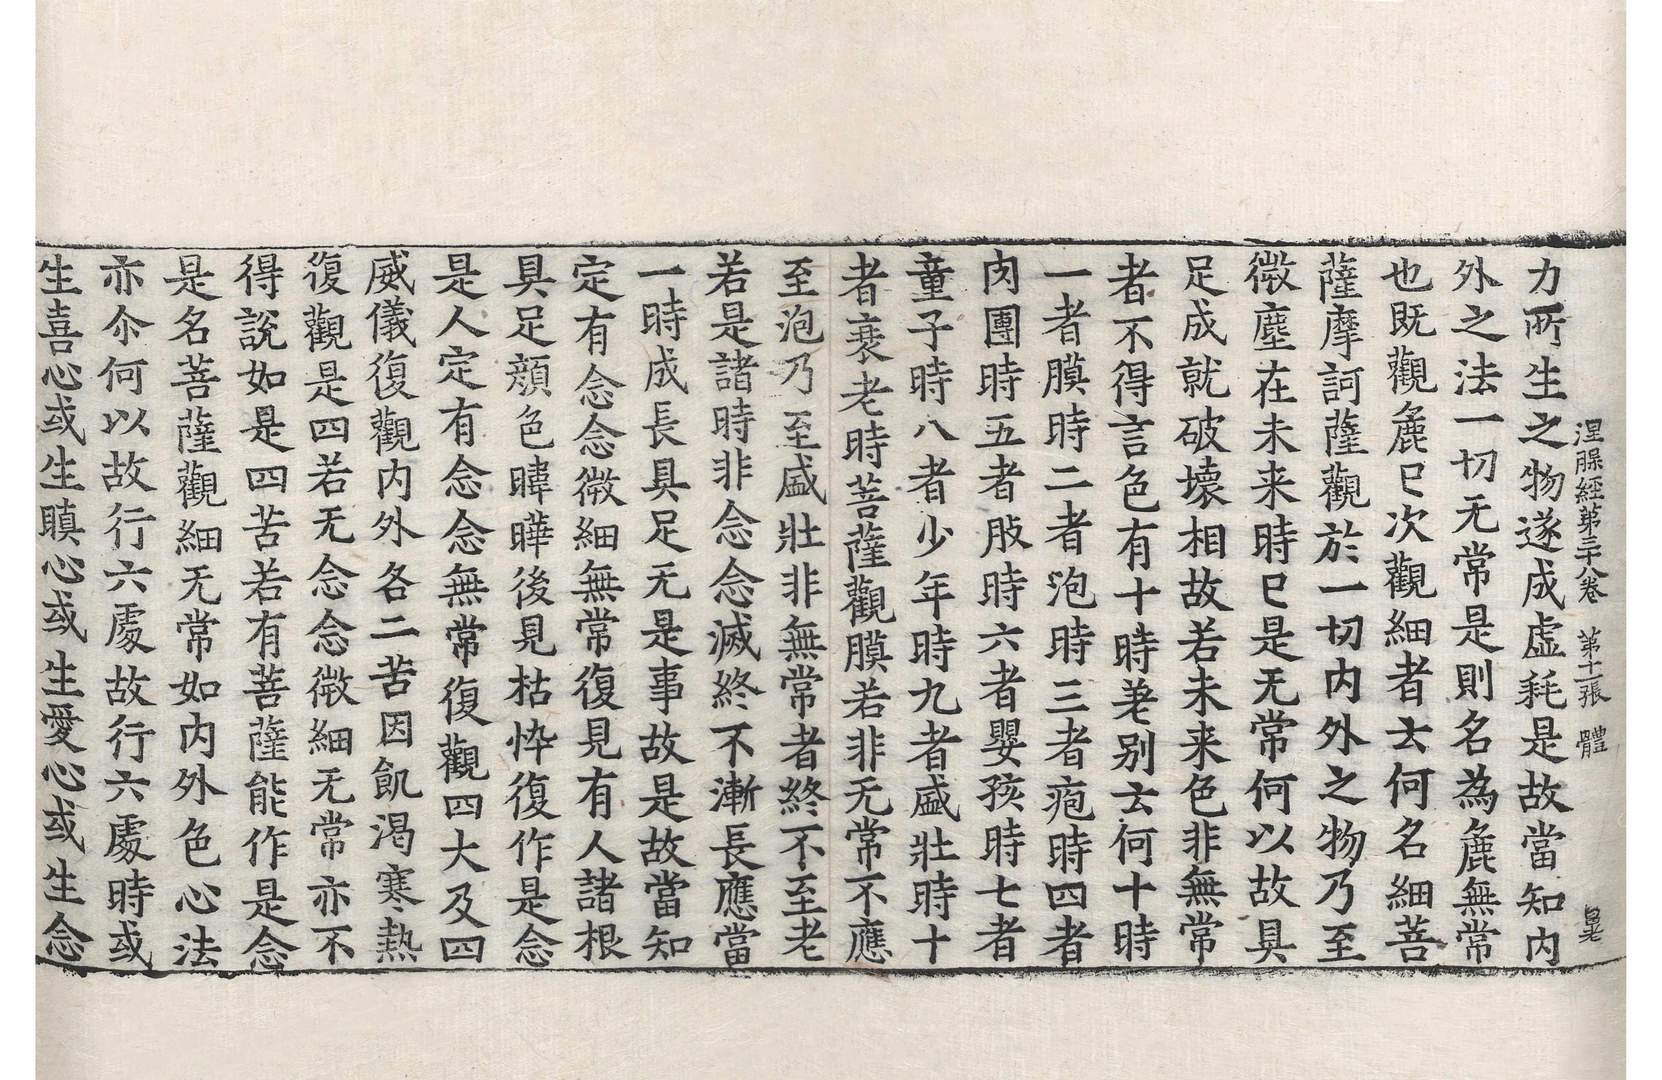 涅槃經第三十八卷 第十一張 體
力所生之物遂成虛耗是故當知內
外之法一切无常是則名為麁無常
也既觀麁已次觀細者云何名細菩
薩摩訶薩觀於一切內外之物乃至
微塵在未来時已是无常何以故具
足成就破壞相故若未来色非無常
者不得言色有十時差别云何十時
一者膜時二者泡時三者疱時四者
肉團時五者肢時六者嬰孩時七者
童子時八者少年時九者盛壯時十
者衰老時菩薩觀膜若非无常不應
至泡乃至盛壯非無常者終不至老
若是諸時非念念滅終不漸長應當
一時成長具足无是事故是故當知
定有念念微細無常復見有人諸根
具足顏色暐曄後見枯悴復作是念
是人定有念念無常復觀四大及四
威儀復觀內外各二苦因飢渴寒熱
復觀是四若无念念微細无常亦不
得說如是四苦若有菩薩能作是念
是名菩薩觀細无常如內外色心法
亦尒何以故行六處故行六處時或
生喜心或生瞋心或生愛心或生念